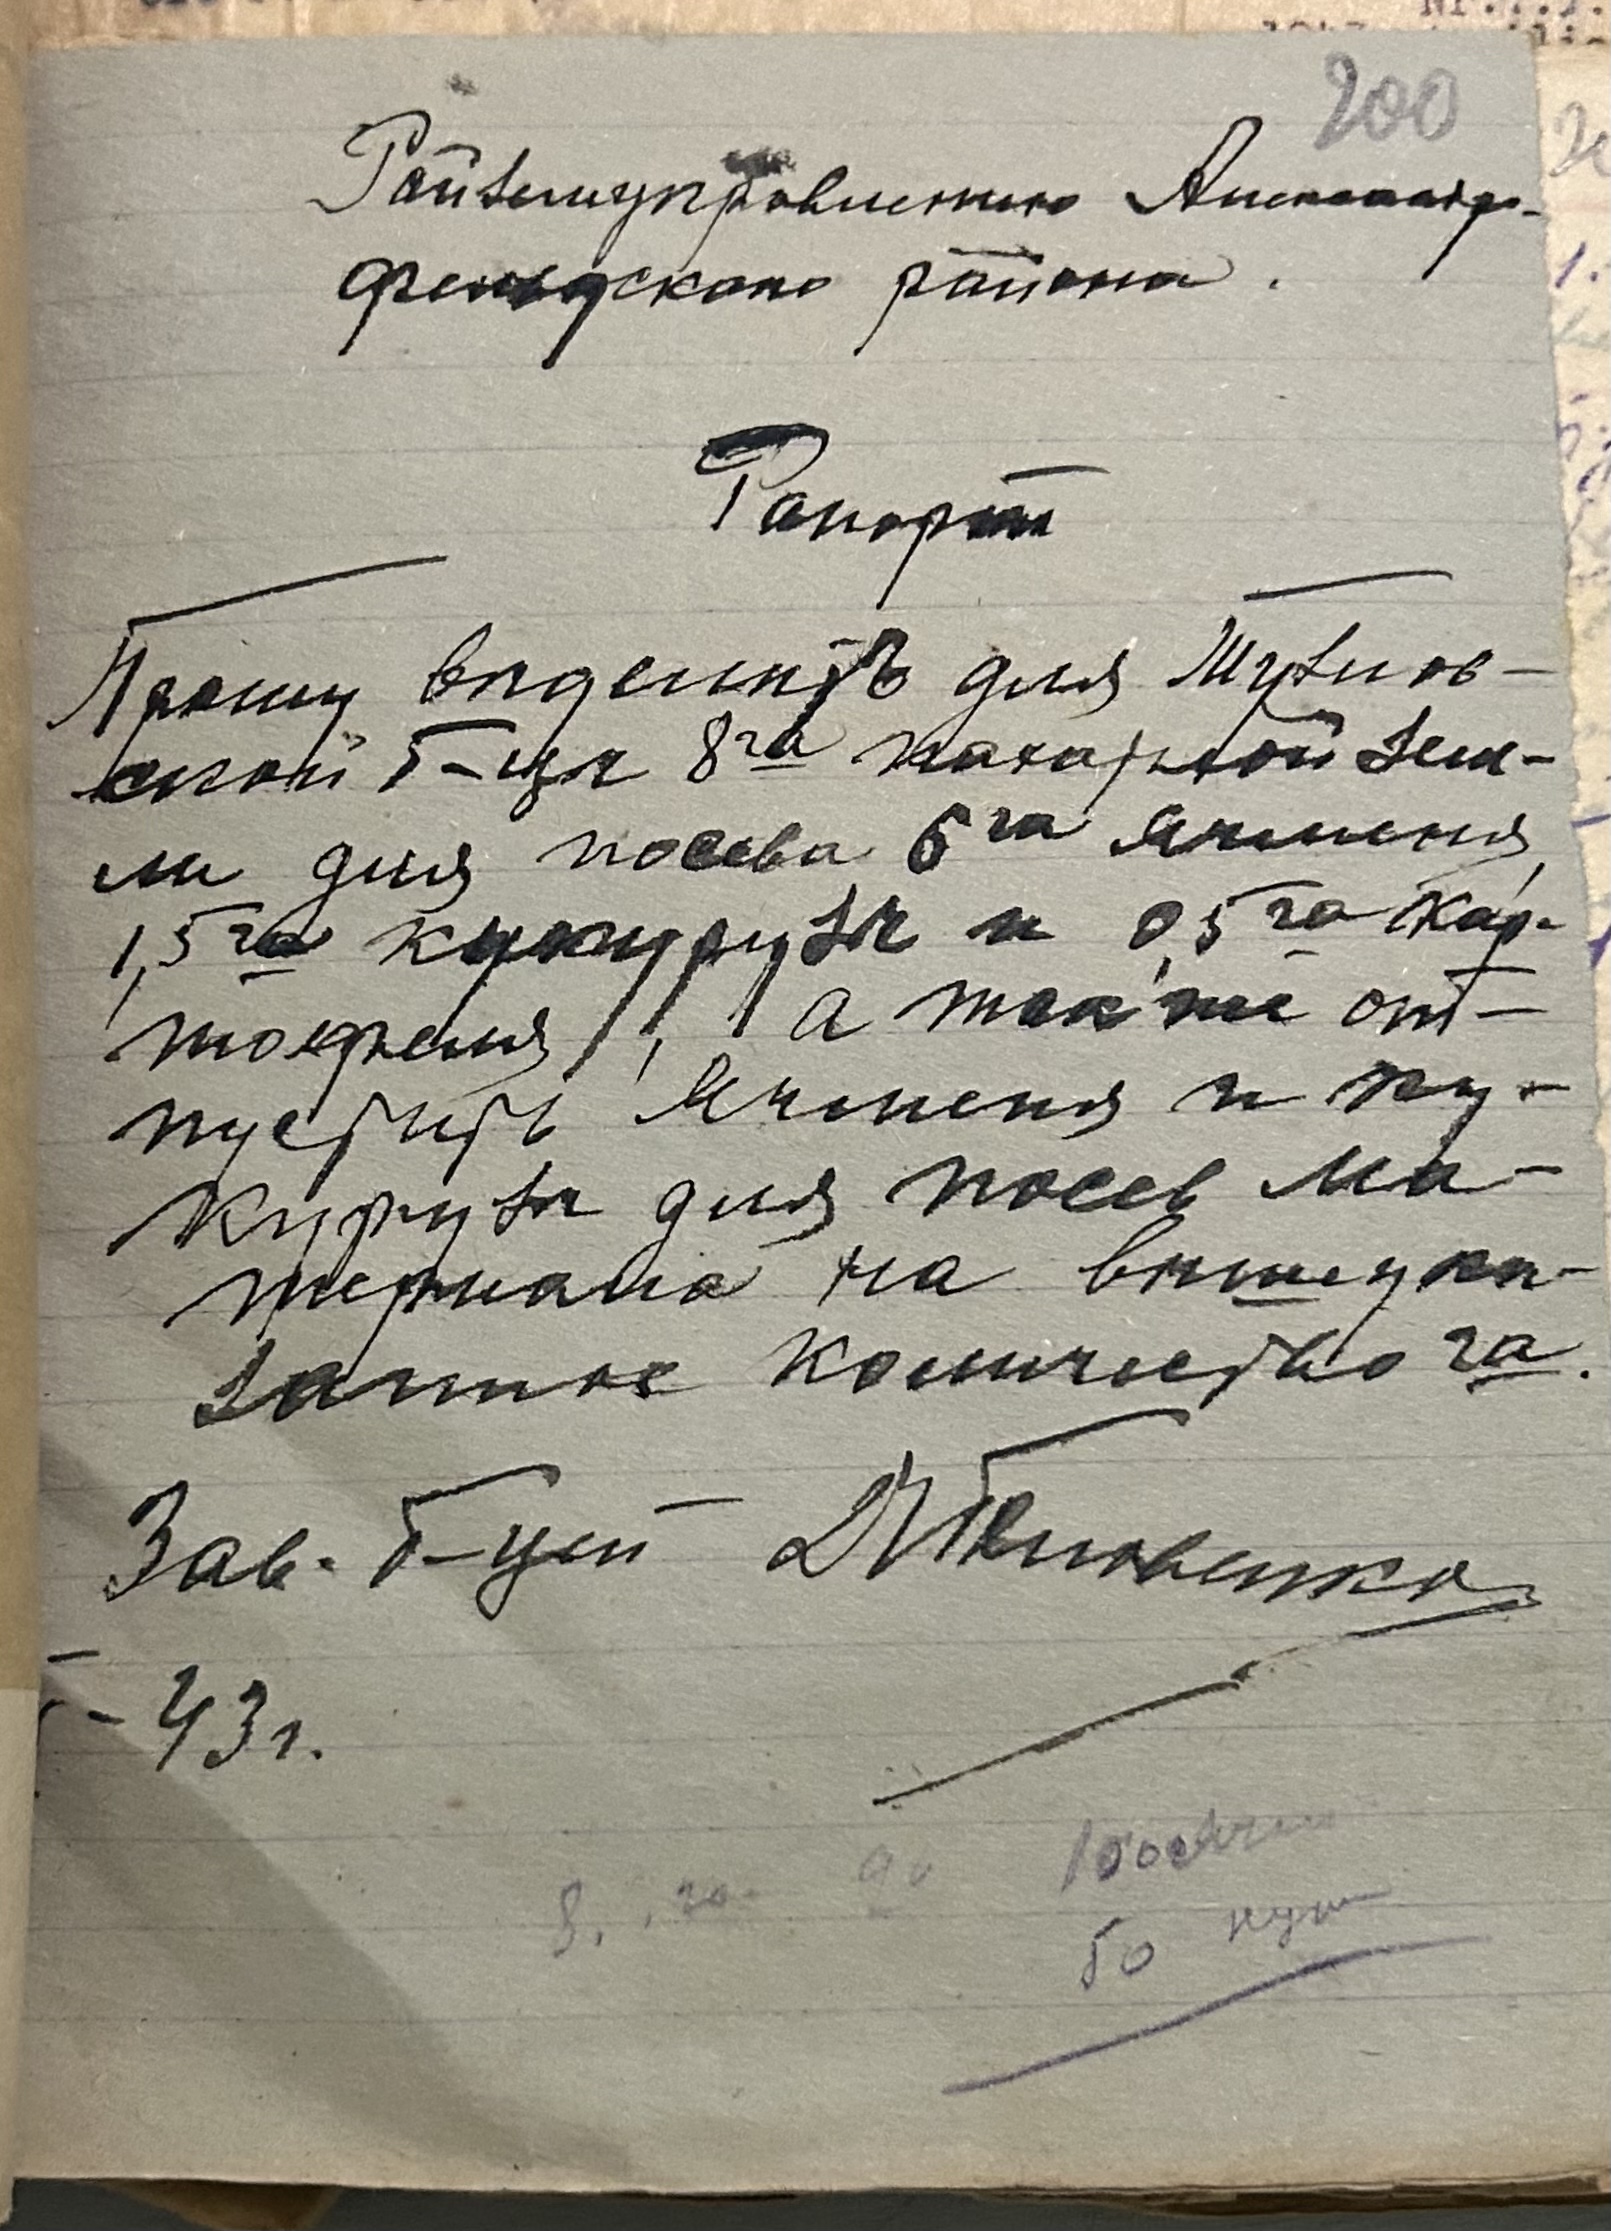 200
Райземуправлению Александр-
фельдского района.
Рапорт
Прошу выделить для
ской б-цы 8 га пахатной зем-
ли для посева 6 га ячменя,
1,5 га кукурузы и 0,5 га кар-
тофеля, а также от-
пустить ячменя и ку-
курузы для посев ма-
териала на вышеука-
занное количество га.
Зав. б-цей
43 г.
50